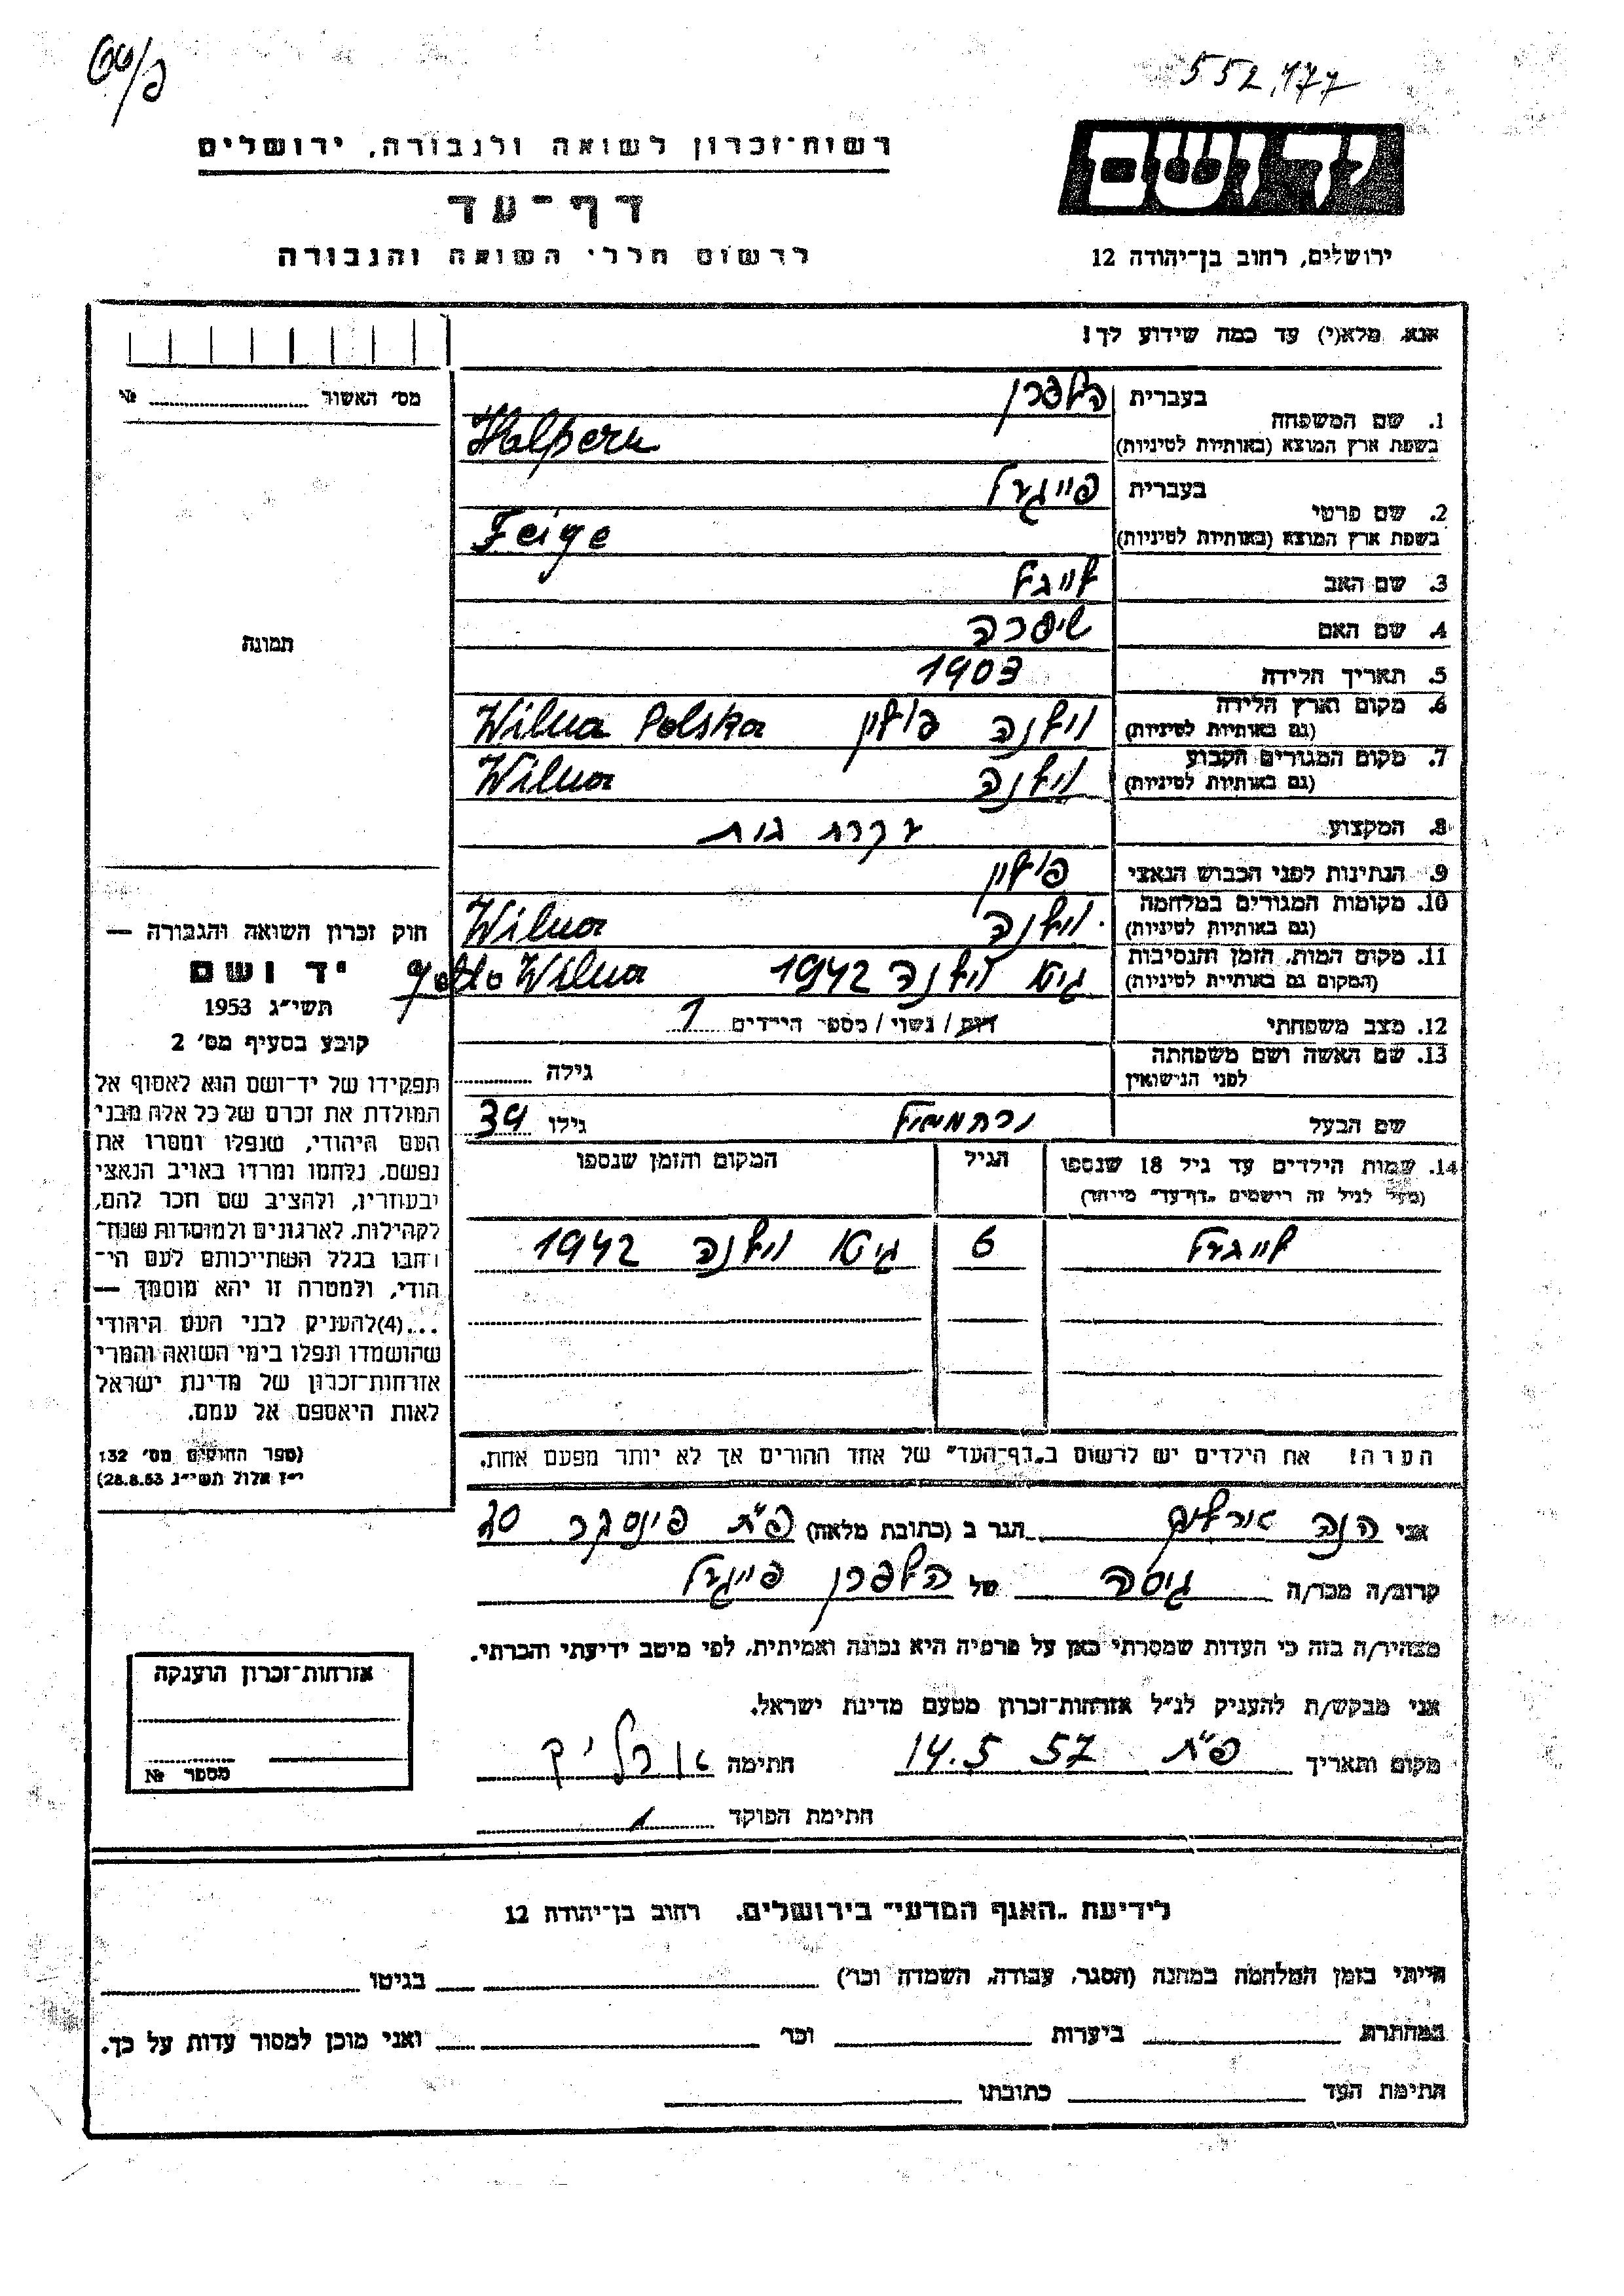 552,177
רשות־זכרון לשואה ולגבורה, ירושלים
יד ושם
דף־עד
לרשום חללי השואה והגבורה
ירושלים, רחוב בן־יהודה 12
אנא, מלא(י) עד כמה שידוע לך!
מס׳ האשור № 
1. שם המשפחה בעברית הלפרן
בשפת ארץ המוצא (באותיות לטיניות) Halpern
2. שם פרטי בעברית פייגעל
בשפת ארץ המוצא (באותיות לטיניות) Feige
3. שם האב
4. שם האם שיפרה
5. תאריך הלידה 1903
6. מקום וארץ הלידה (גם באותיות לטיניות) וילנה פולין Wilna Polska
7. מקום המגורים הקבוע (גם באותיות לטיניות) וילנה Wilna
8. המקצוע עקרת בית
9. הנתינות לפני הכבוש הנאצי פולין
10. מקומות המגורים במלחמה (גם באותיות לטיניות) וילנה Wilna
11. מקום המות, הזמן והנסיבות (המקום גם באותיות לטיניות) גיטו וילנה 1942 Wilna
12. מצב משפחתי רווק / נשוי / מספר הילדים 1
13. שם האשה ושם משפחתה לפני הנישואין גילה
שם הבעל ירחמיאל גילו 39
14. שמות הילדים עד גיל 18 שנספו הגיל המקום והזמן שנספו
(מעל לגיל זה רושמים „דף־עד” מיוחד)
6 גיטו וילנה 1942
הערה! את הילדים יש לרשום ב„דף־העד” של אחד ההורים אך לא יותר מפעם אחת.
תמונה
חוק זכרון השואה והגבורה —
יד ושם
תשי״ג 1953
קובע בסעיף מס׳ 2
תפקידו של יד־ושם הוא לאסוף אל
המולדת את זכרם של כל אלה מבני
העם היהודי, שנפלו ומסרו את
נפשם, נלחמו ומרדו באויב הנאצי
ובעוזריו, ולהציב שם וזכר להם,
לקהילות, לארגונים ולמוסדות שנח־
רבו בגלל השתייכותם לעם הי־
הודי, ולמטרה זו יהא מוסמך —
...(4)להעניק לבני העם היהודי
שהושמדו ונפלו בימי השואה והמרי
אזרחות־זכרון של מדינת ישראל
לאות היאספם אל עמם.
(ספר החוקים מס׳ 132
י״ז אלול תשי״ג 28.8.53)
אני חנה אורליק הגר ב (כתובת מלאה) פ״ת פינסקר 30
קרוב/ה מכר/ה גיסה של הלפרן פייגעל
מצהיר/ה בזה כי העדות שמסרתי כאן על פרטיה היא נכונה ואמיתית, לפי מיטב ידיעתי והכרתי.
אני מבקש/ת להעניק לנ״ל אזרחות־זכרון מטעם מדינת ישראל.
מקום ותאריך פ״ת 14.5 57 חתימה אורליק
חתימת הפוקד
אזרחות־זכרון הוענקה
מספר №
לידיעת „האגף המדעי” בירושלים, רחוב בן־יהודה 12
הייתי בזמן המלחמה במחנה (הסגר, עבודה, השמדה וכו׳) בגיטו
במחתרת ביערות וכו׳ ואני מוכן למסור עדות על כך.
חתימת העד כתובתו